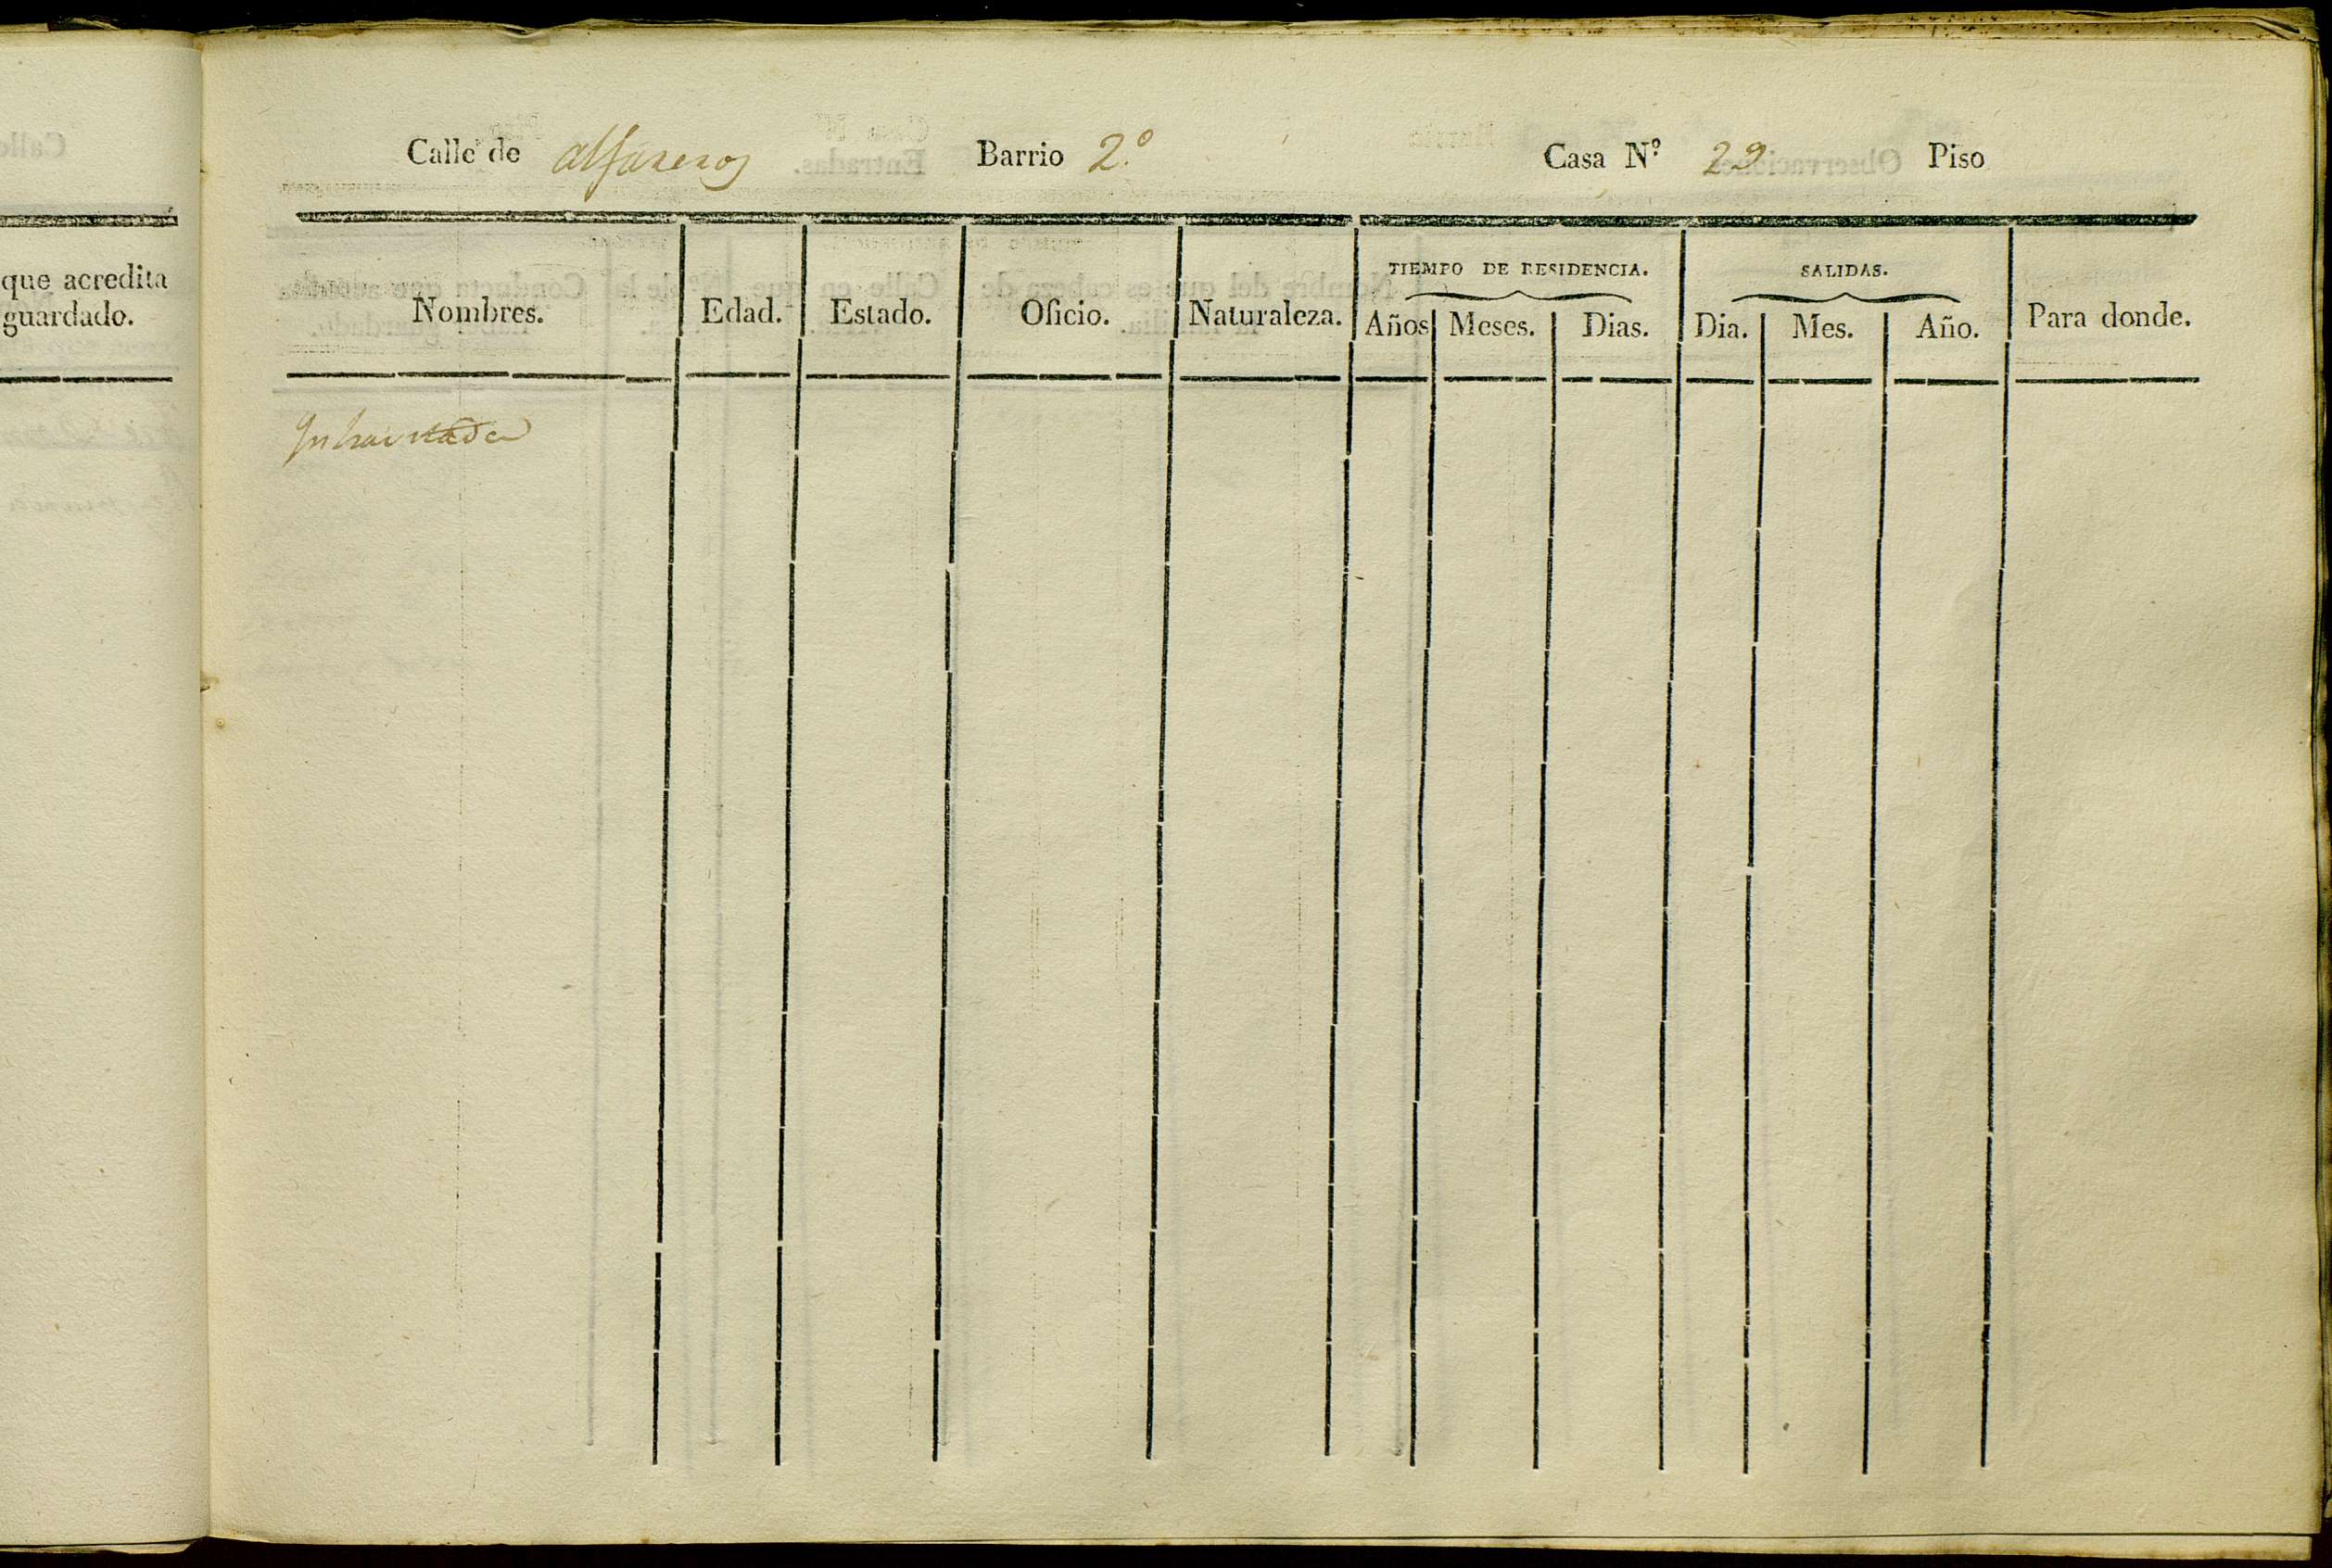 que acredita
guardado.
Calle de alfareros Barrio 2.º Casa N.º 29 Piso
Nombres. Edad. Estado. Oficio. Naturaleza. TIEMPO DE RESIDENCIA. SALIDAS. Para donde.
Años Meses. Dias. Dia. Mes. Año.